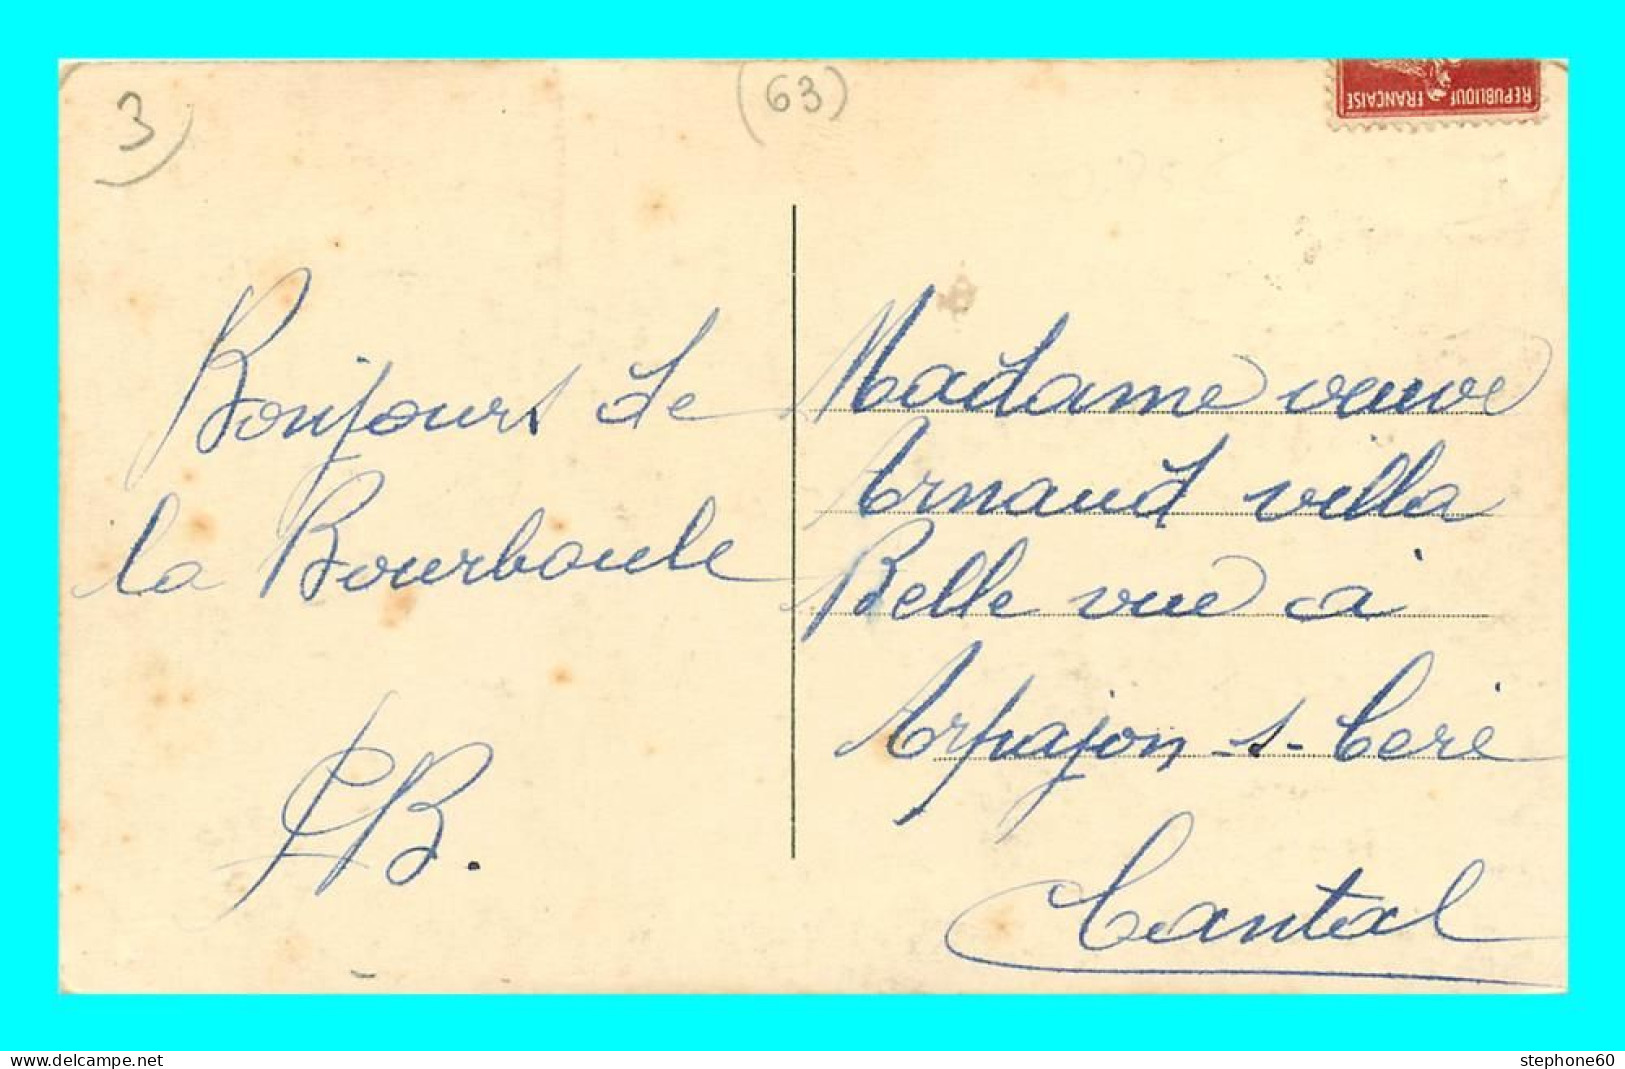 3
(63)
REPUBLIQUE FRANCAISE
Bonjours de
la Bourboule
Madame veuve
Arnaud villa
Belle vue à
Arpajon-s-Cère
Cantal
www.delcampe.net
stephone60